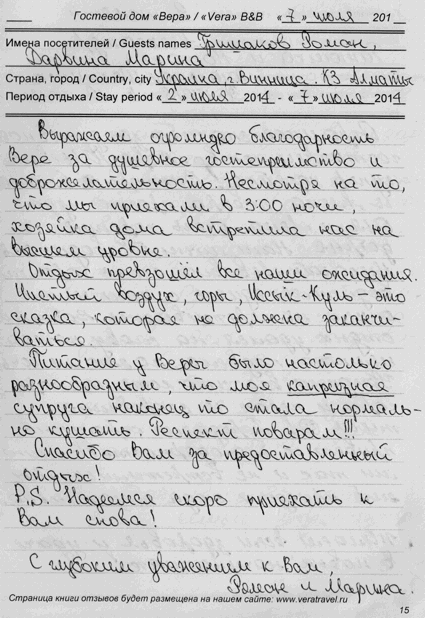 Гостевой дом «Вера» / «Vera» B&B «7» июля 201
Имена посетителей / Guests names Гришаков Роман,
Дарвина Марина
Страна, город / Country, city Украина, г. Винница. КЗ Алматы
Период отдыха / Stay period «2» июля 2014 - «7» июля 2014
Выражаем огромную благодарность
Вере за душевное гостеприимство и
доброжелательность. Несмотря на то,
что мы приехали в 3:00 ночи,
хозяйка дома встретила нас на
высшем уровне.
Отдых превзошёл все наши ожидания.
Чистый воздух, горы, Иссык-Куль – это
сказка, которая не должна заканчи-
ваться.
Питание у Веры было настолько
разнообразным, что моя капризная
супруга наконец то стала нормаль-
но кушать. Респект поварам!!!
Спасибо Вам за предоставленный
отдых!
P.S. Надеемся скоро приехать к
Вам снова!
С глубоким уважением к Вам
Роман и Марина.
Страница книги отзывов будет размещена на нашем сайте: www.veratravel.ru
15